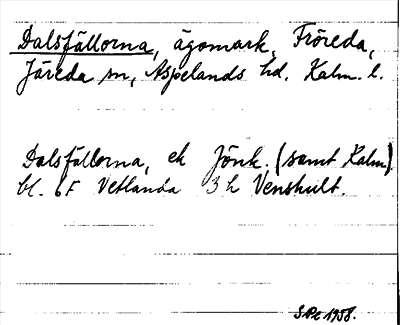 Dalsfällorna, ägomark, Fröreda,
Järeda sn, Aspelands hd. Kalm. l.
Dalsfällorna, ek Jönk. (samt Kalm)
bl. 6F Vetlanda 3 h Venshult.
S.Pe 1958.